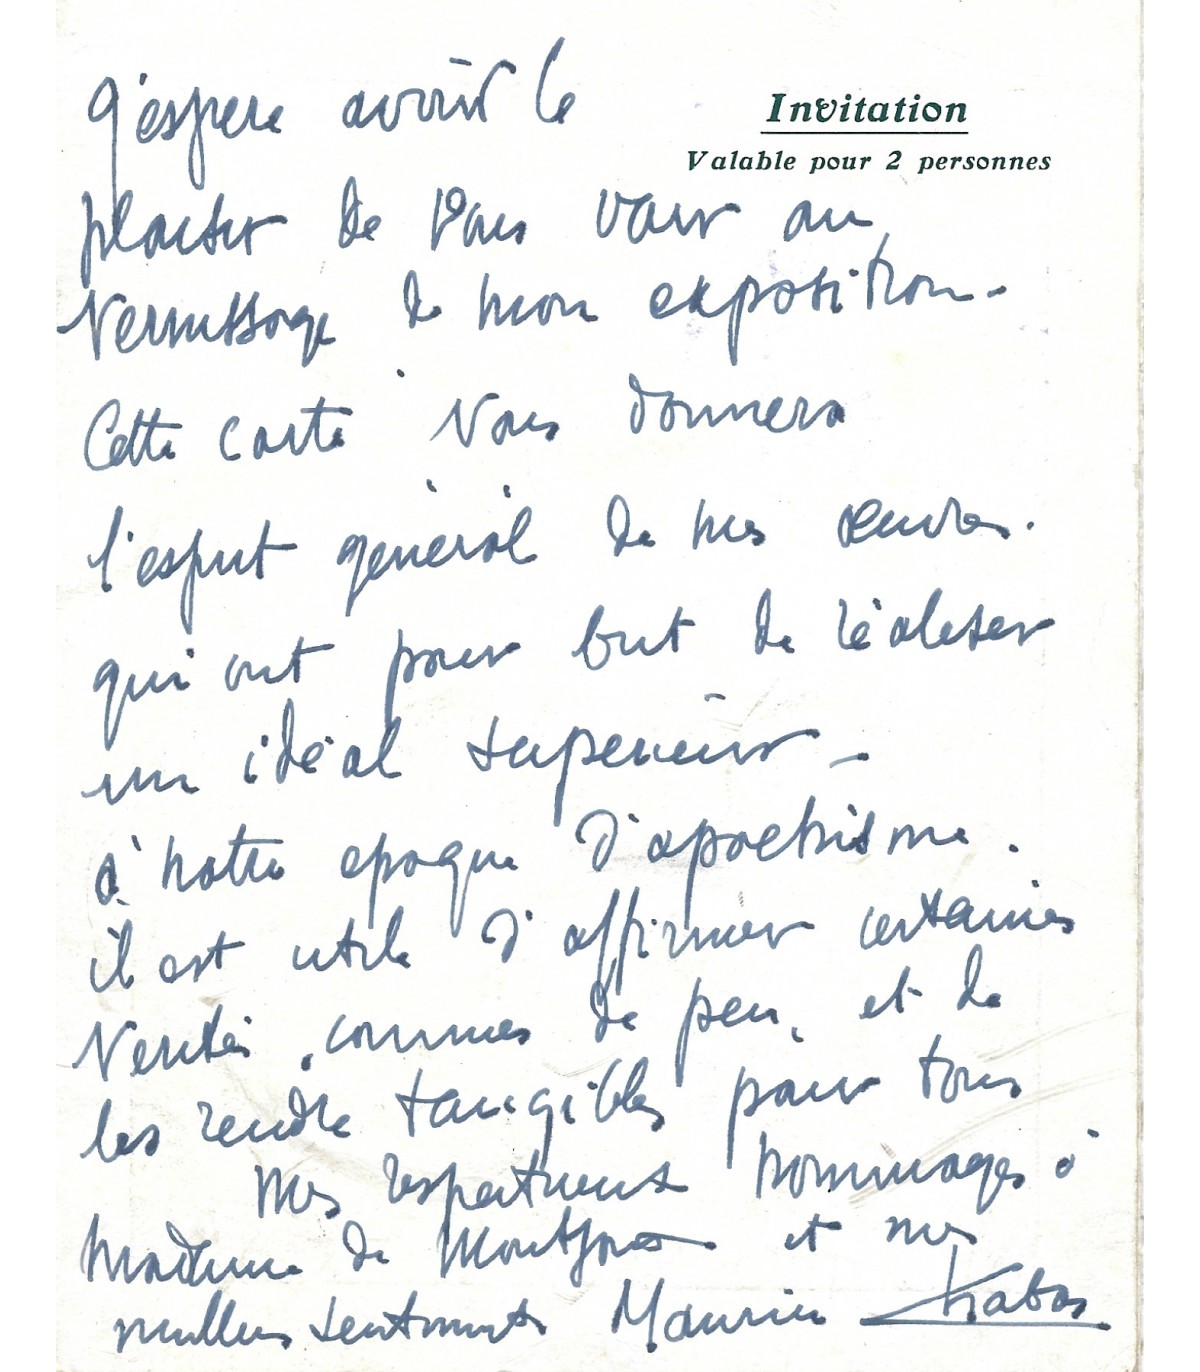 J'espere avoir le
Invitation
Valable pour 2 personnes
plaisir de vous voir au
Vernissage de mon exposition -
Cette carte vous donnera
l'esprit général de mes œuvres.
qui ont pour but de réaliser
un idéal supérieur -
à notre epoque d'apochisme.
il est utile d'affirmer certaines
Verités, connues de peu, et de
les rendre tangibles pour tous
Mes respectueux hommages à
Madame de et mes
meilleurs sentiments Maurice Chabas